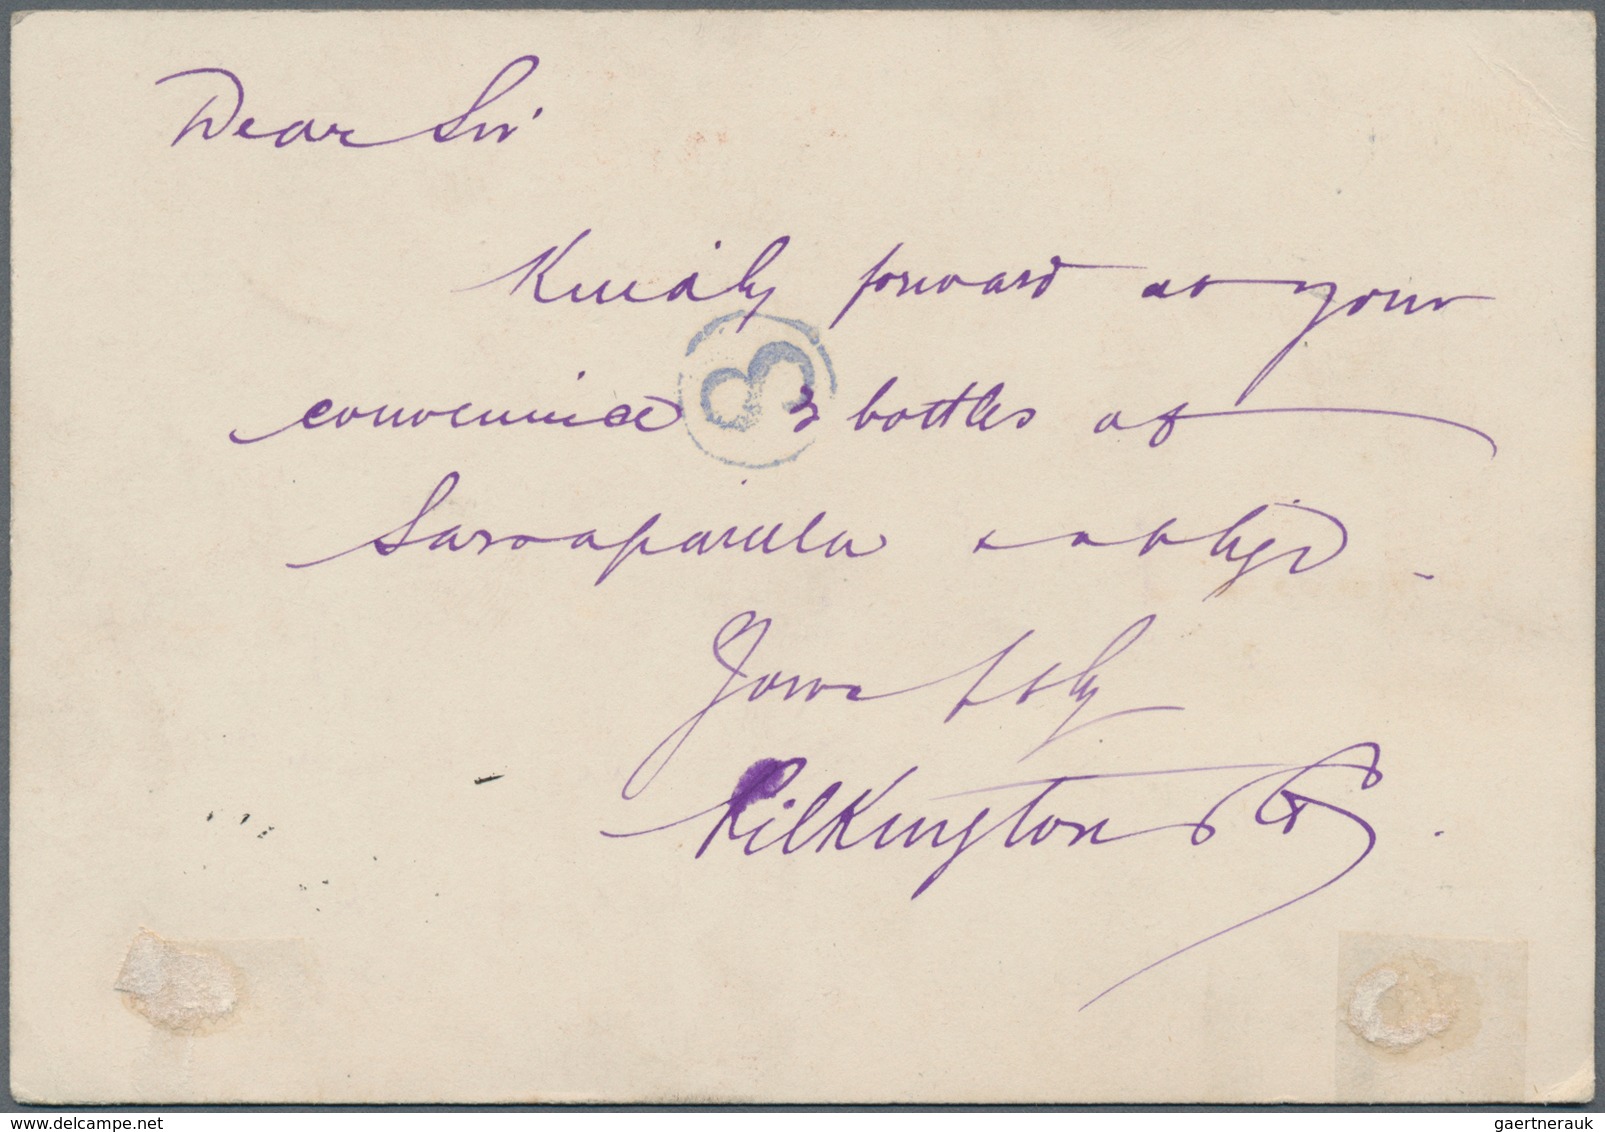 Dear Sir
Kindly forward at your
convenience 3 bottles of
Sarsaparilla & oblige
Yours ftly
Pilkington
3
gaertnerauk